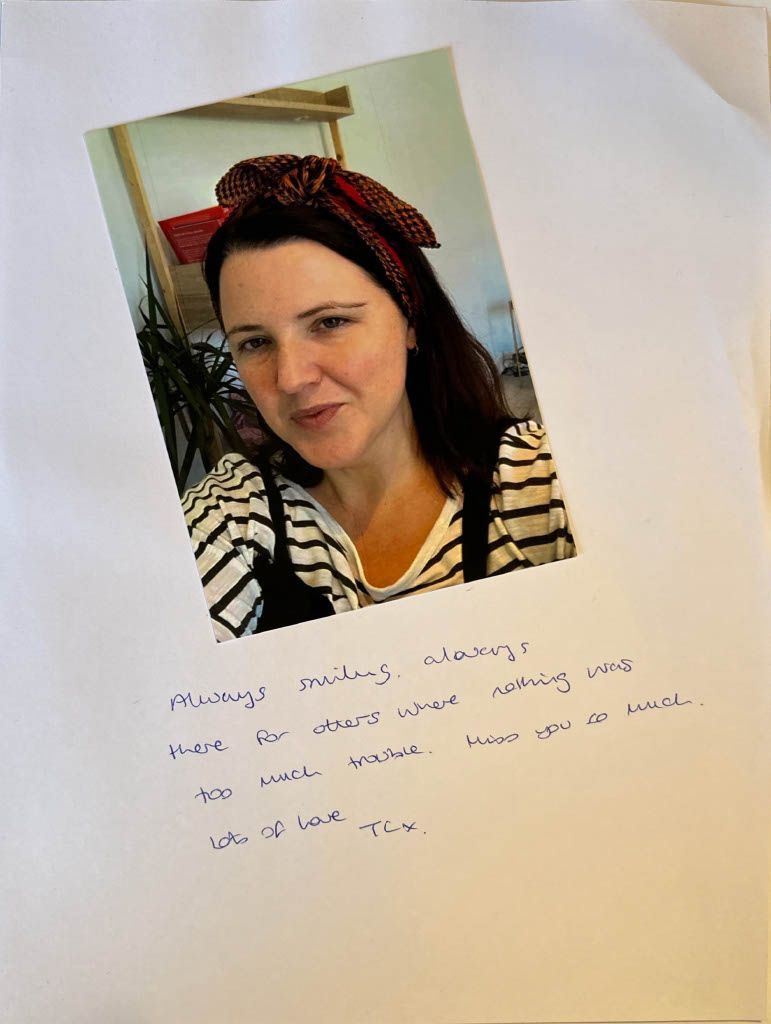 Always smiling. always
there for others where nothing was
too much trouble. Miss you so much.
lots of love TCx.